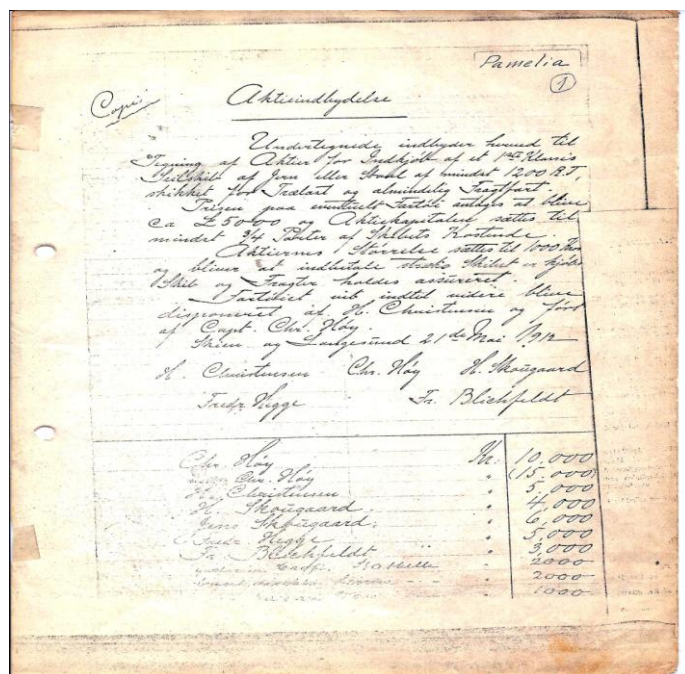 Pamelia
1
Copi
Aktieindbydelse
Undertegnede indbyder herved til
Tegning af Aktier for Indkjöb af et 1ste Klasses
Seilskib af Jern eller Staal af mindst 1200 R.T,
skikket for Trælast og almindelig Fragtfart.
Prisen paa eventuelt Fartöi antages at blive
ca £ 5000 og Aktiekapitalen sættes til
mindst 3/4 Parter af Skibets Kostende.
Aktiernes Störrelse sættes til 1000 Kr
og bliver at indbetale straks Skibet er kjöbt
Skib og Fragter holdes assureret.
Fartöiet vil indtil videre blive
disponeret af H. Christensen og fört
af Capt. Chr. Höy.
Skien og Langesund 21de Mai 1912
H. Christensen Chr. Höy H. Skougaard
Fredr. Hegge Fr. Blichfeldt
Chr. Höy Kr. 10,000
Chr. Höy " (15,000)
H. Christensen " 5,000
H. Skougaard " 4,000
Jens Skougaard. " 6,000
Fredr. Hegge " 5,000
Fr. Blichfeldt " 3,000
" 2000
" 2000
" 1000